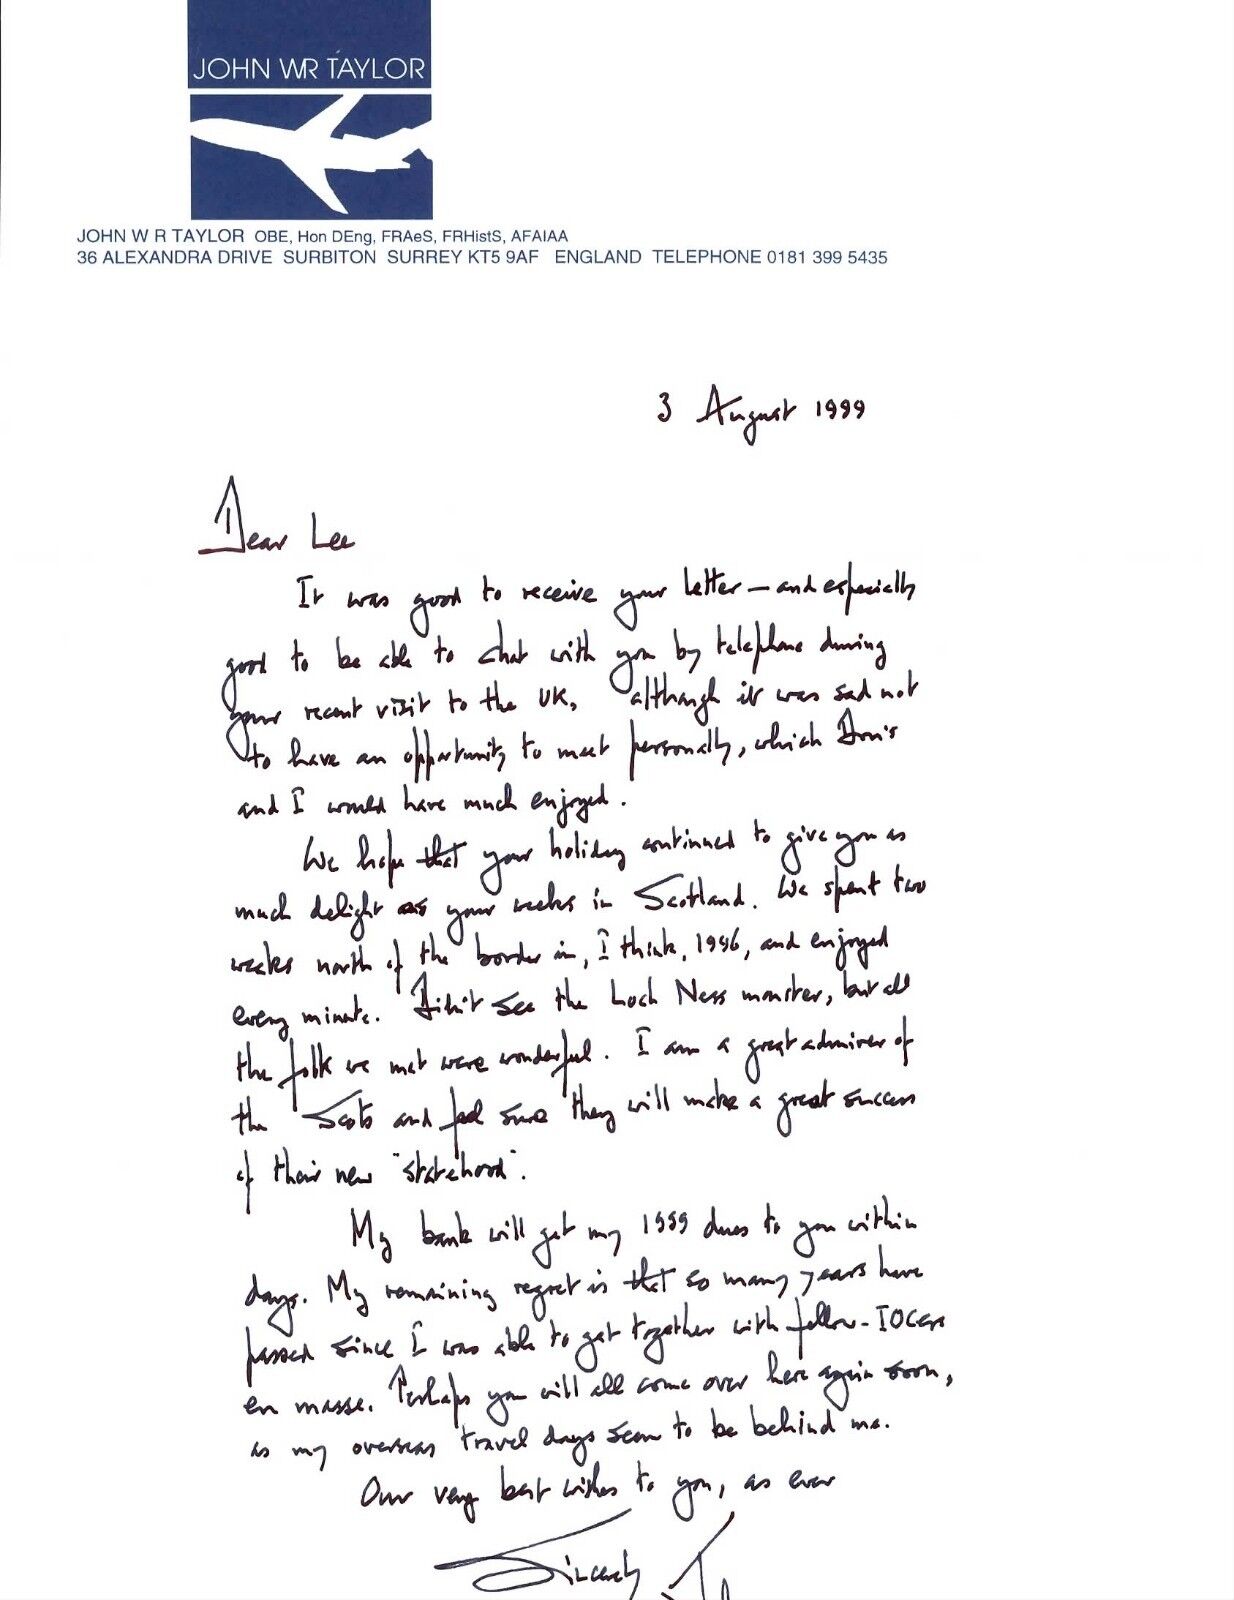 JOHN WR TAYLOR
JOHN W R TAYLOR OBE, Hon DEng, FRAeS, FRHistS, AFAIAA
36 ALEXANDRA DRIVE SURBITON SURREY KT5 9AF ENGLAND TELEPHONE 0181 399 5435
3 August 1999
Dear Lee
It was good to receive your letter — and especially
good to be able to chat with you by telephone during
your recent visit to the UK, although it was sad not
to have an opportunity to meet personally, which Doris
and I would have much enjoyed.
We hope that your holiday continued to give you as
much delight as your weeks in Scotland. We spent two
weeks north of the border in, I think, 1996, and enjoyed
every minute. Didn't see the Loch Ness monster, but all
the folk we met were wonderful. I am a great admirer of
the Scots and feel sure they will make a great success
of their new "statehood".
My bank will get my 1999 dues to you within
days. My remaining regret is that so many years have
passed since I was able to get together with fellow-IOCers
en masse. Perhaps you will all come over here again soon,
as my overseas travel days seem to be behind me.
Our very best wishes to you, as ever
Sincerely